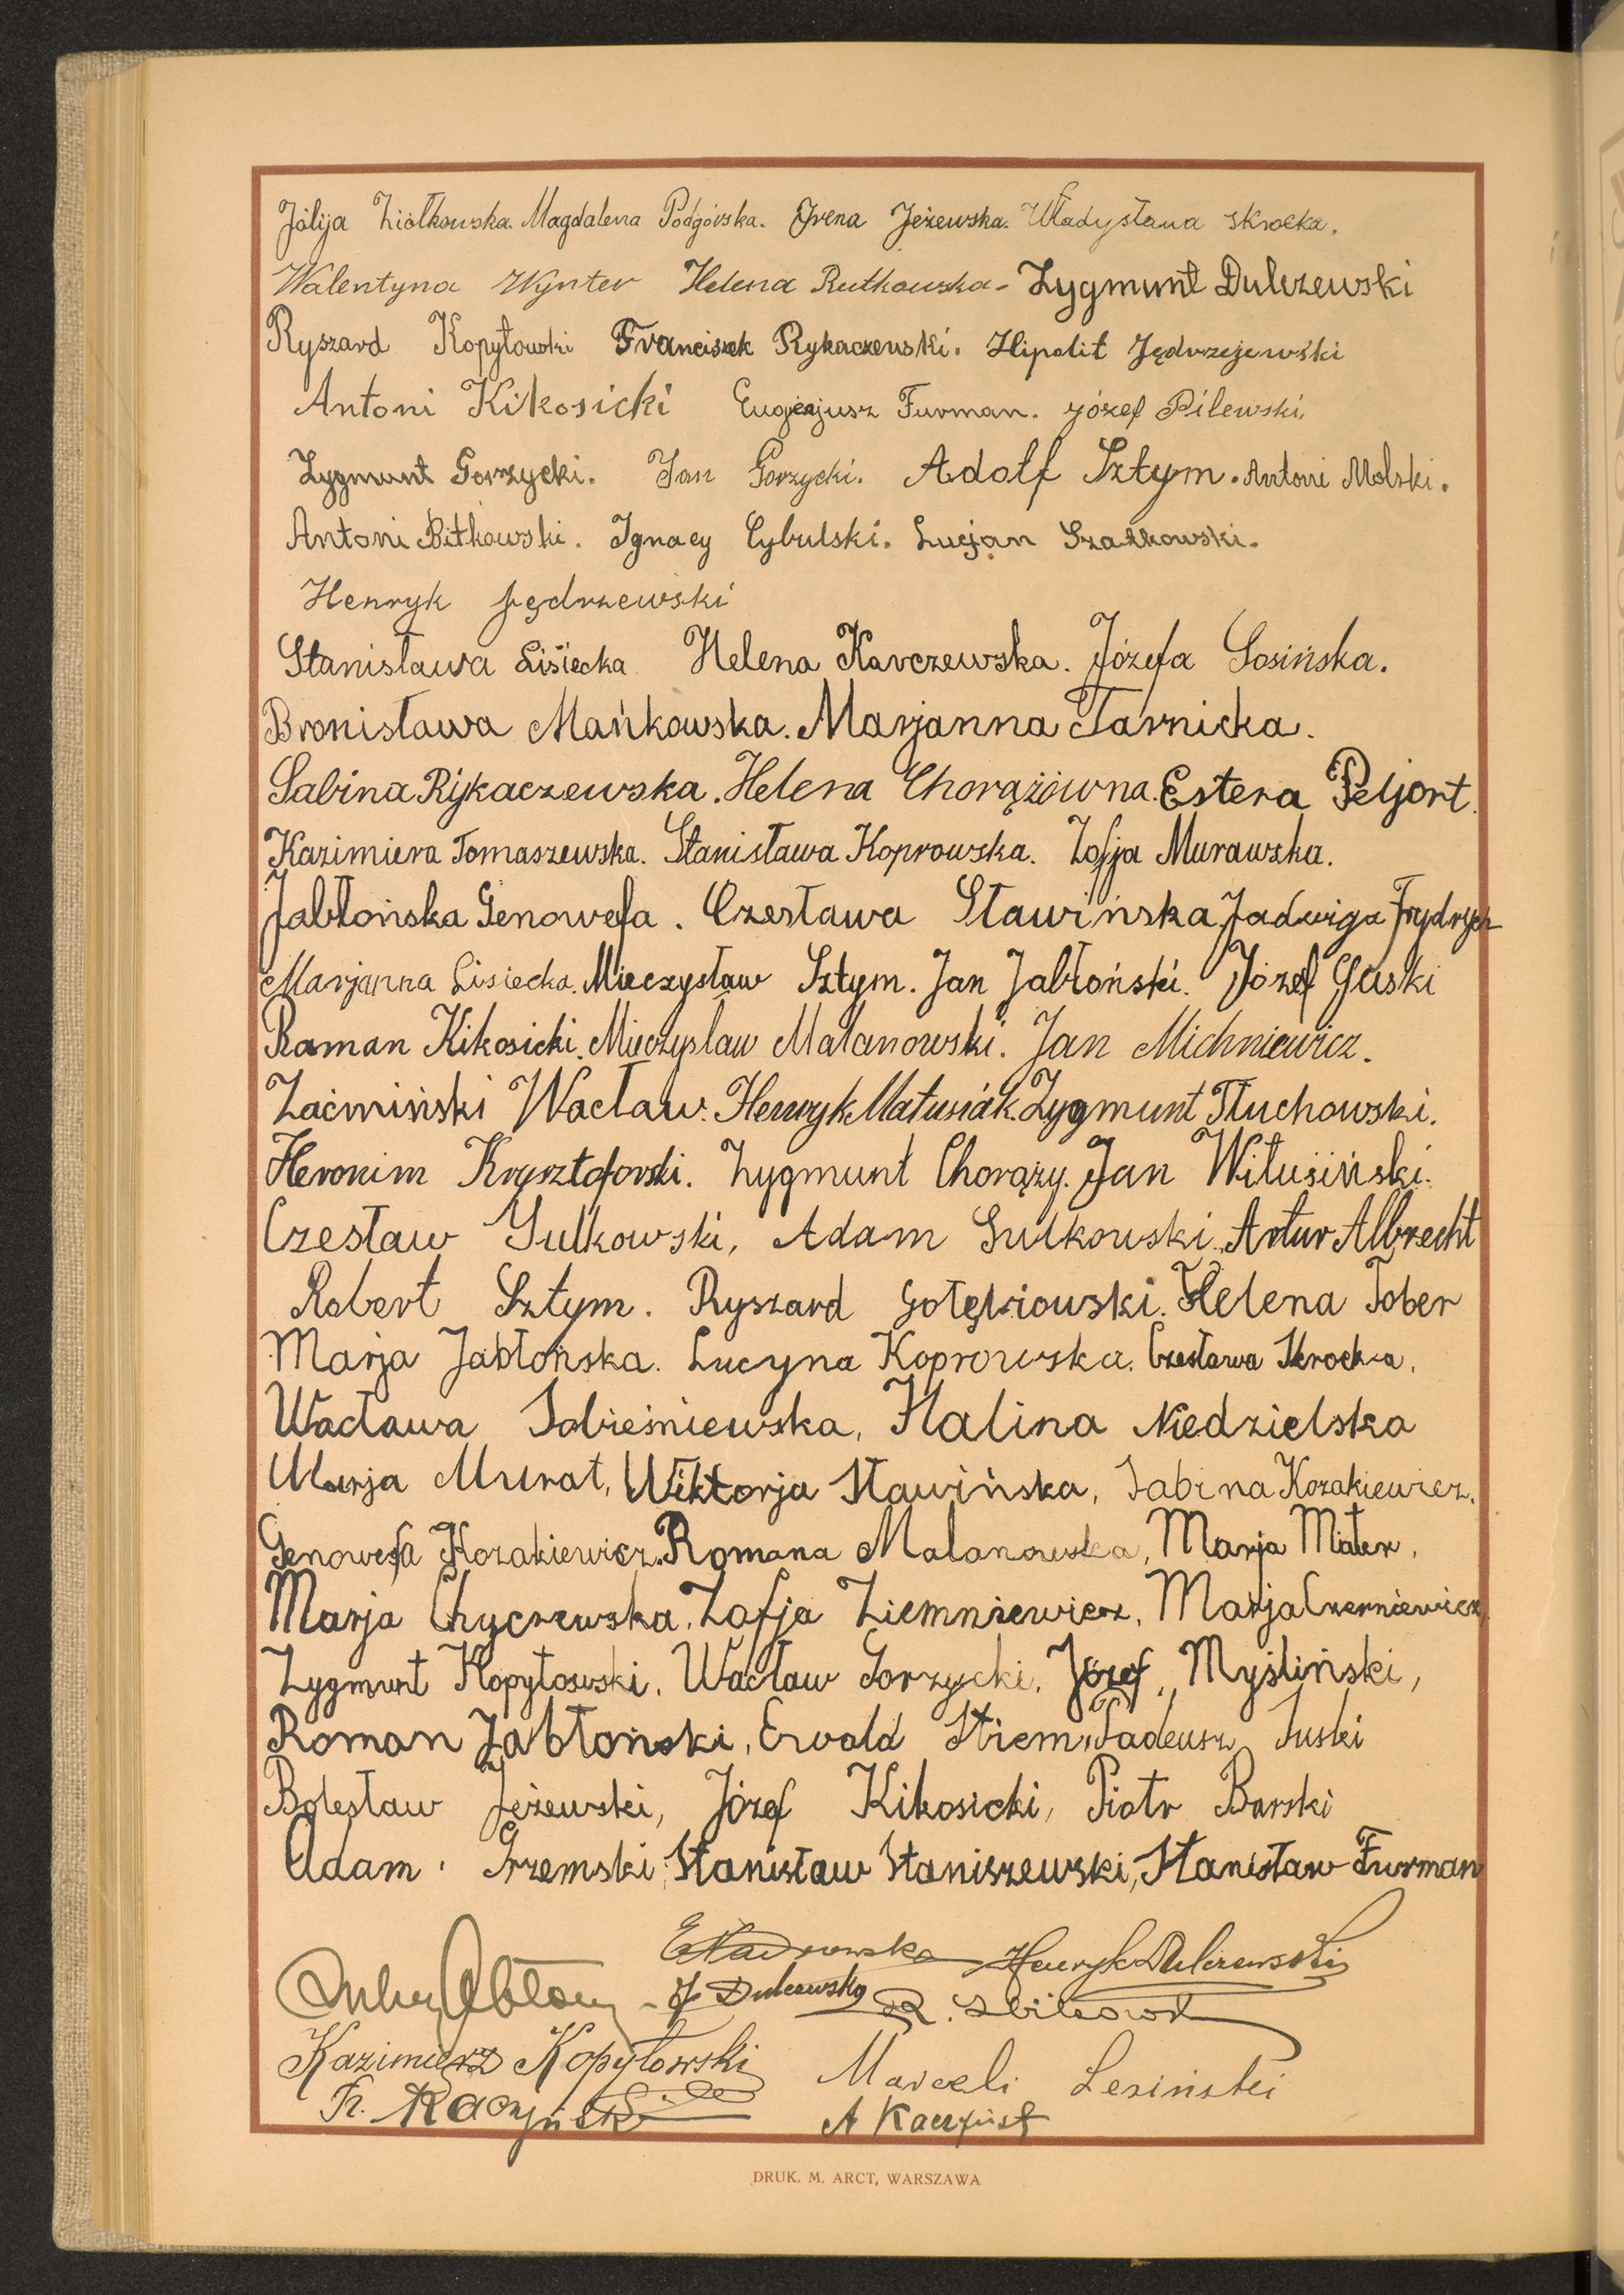 Jólija Ziółkowska. Magdalena Podgórska. Irena Jeżewska. Władysława Skrocka.
Walentyna Wynter Helena Rutkowska - Zygmunt Dulczewski
Ryszard Kopytowski Franciszek Rykaczewski. Hipolit Jędrzejewski
Antoni Kikosicki Eugenjusz Furman. Józef Pilewski,
Zygmunt Gorzycki. Jan Gorzycki. Adolf Sztym. Antoni Molski.
Antoni Bitkowski. Ignacy Cybulski. Lucjan Szałkowski.
Henryk Jędrzewski
Stanisława Lisiecka Helena Karczewska. Józefa Sosińska.
Bronisława Mańkowska. Marjanna Tarnicka.
Sabina Rykaczewska. Helena Chorążówna. Estera Peljort.
Kazimiera Tomaszewska. Stanisława Koprowska. Zofja Murawska.
Jabłońska Genowefa. Czesława Sławińska Jadwiga Frydrych
Marjanna Lisiecka. Mieczysław Sztym. Jan Jabłoński. Józef Guski
Roman Kikosicki. Mieczyslaw Malanowski. Jan Michniewicz.
Zaćmiński Wacław. Henryk Matusiák. Zygmunt Tłuchowski.
Heronim Krysztoforski. Zygmunt Chorąży. Jan Witusiński.
Czesław Gulkowski, Adam Gulkowski. Artur Albrecht
Robert Sztym. Ryszard Gołębiowski. Helena Tober
Marja Jabłońska. Lucyna Koprowska. Czesława Skrocka,
Wacława Sobieśniewska, Halina Niedzielska
Marja Murat, Wiktorja Sławińska, Sabina Kozakiewicz,
Genowefa Kozakiewicz. Romana Malanowska, Marja Mater,
Marja Chyczewska. Zofja Ziemniewicz, Marja Czerniewicz,
Zygmunt Kopytowski, Wacław Gorzycki, Józef Myśliński,
Roman Jabłoński, Ervald Striem, Tadeusz Suski
Bolesław Jeżewski, Józef Kikosicki, Piotr Barski
Adam Grzemski, Stanisław Staniszewski, Stanisław Furman
Henryk Dulczewski
J. Dulczewska
Kazimierz Kopytowski Marceli Lesiński
Fr. Raczyński A Kacz
DRUK. M. ARCT, WARSZAWA